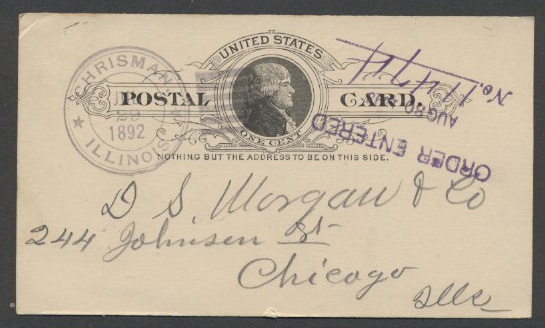 UNITED STATES
POSTAL CARD.
ONE CENT
NOTHING BUT THE ADDRESS TO BE ON THIS SIDE.
CHRISMAN
29
1892
ILLINOIS
ORDER ENTERED
AUG 30
No. 11474
D S. Morgan & Co
244 Johnson St
Chicago
Ills